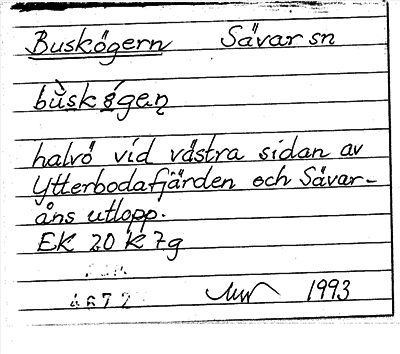 Buskögern Sävar sn
bùskǿgeṇ
halvö vid västra sidan av
Ytterbodafjärden och Sävar-
åns utlopp.
EK 20 K 7g
4672
1993